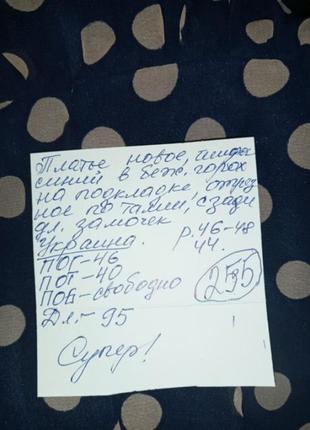 Платье новое, шифон
синий в беж. горох
на подкладке, отрез
ное по талии, сзади
дл. замочек
Украина. р. 46-48
44.
ПОГ-46
ПОТ-40
ПОБ-свободно
255
Дл.-95
Супер!